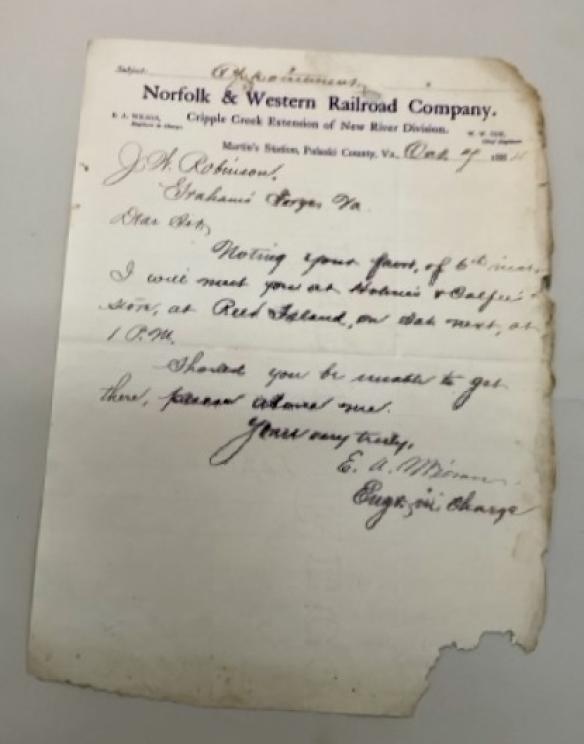 Subject: Appointment
Norfolk & Western Railroad Company.
Cripple Creek Extension of New River Division.
E. A. WILSON,
Engineer in Charge.
W. W. COE,
Chief Engineer
Martin's Station, Pulaski County, Va., Oct. 7 188
J. W. Robinson,
Graham's Forge, Va.
Dear Sir,
Noting your favor, of 6th inst.
I will meet you at &
store, at Reed Island, on Sat. next, at
1 P.M.
Should you be unable to get
there, please advise me.
Yours very truly,
E. A. Wilson
Engr. in Charge